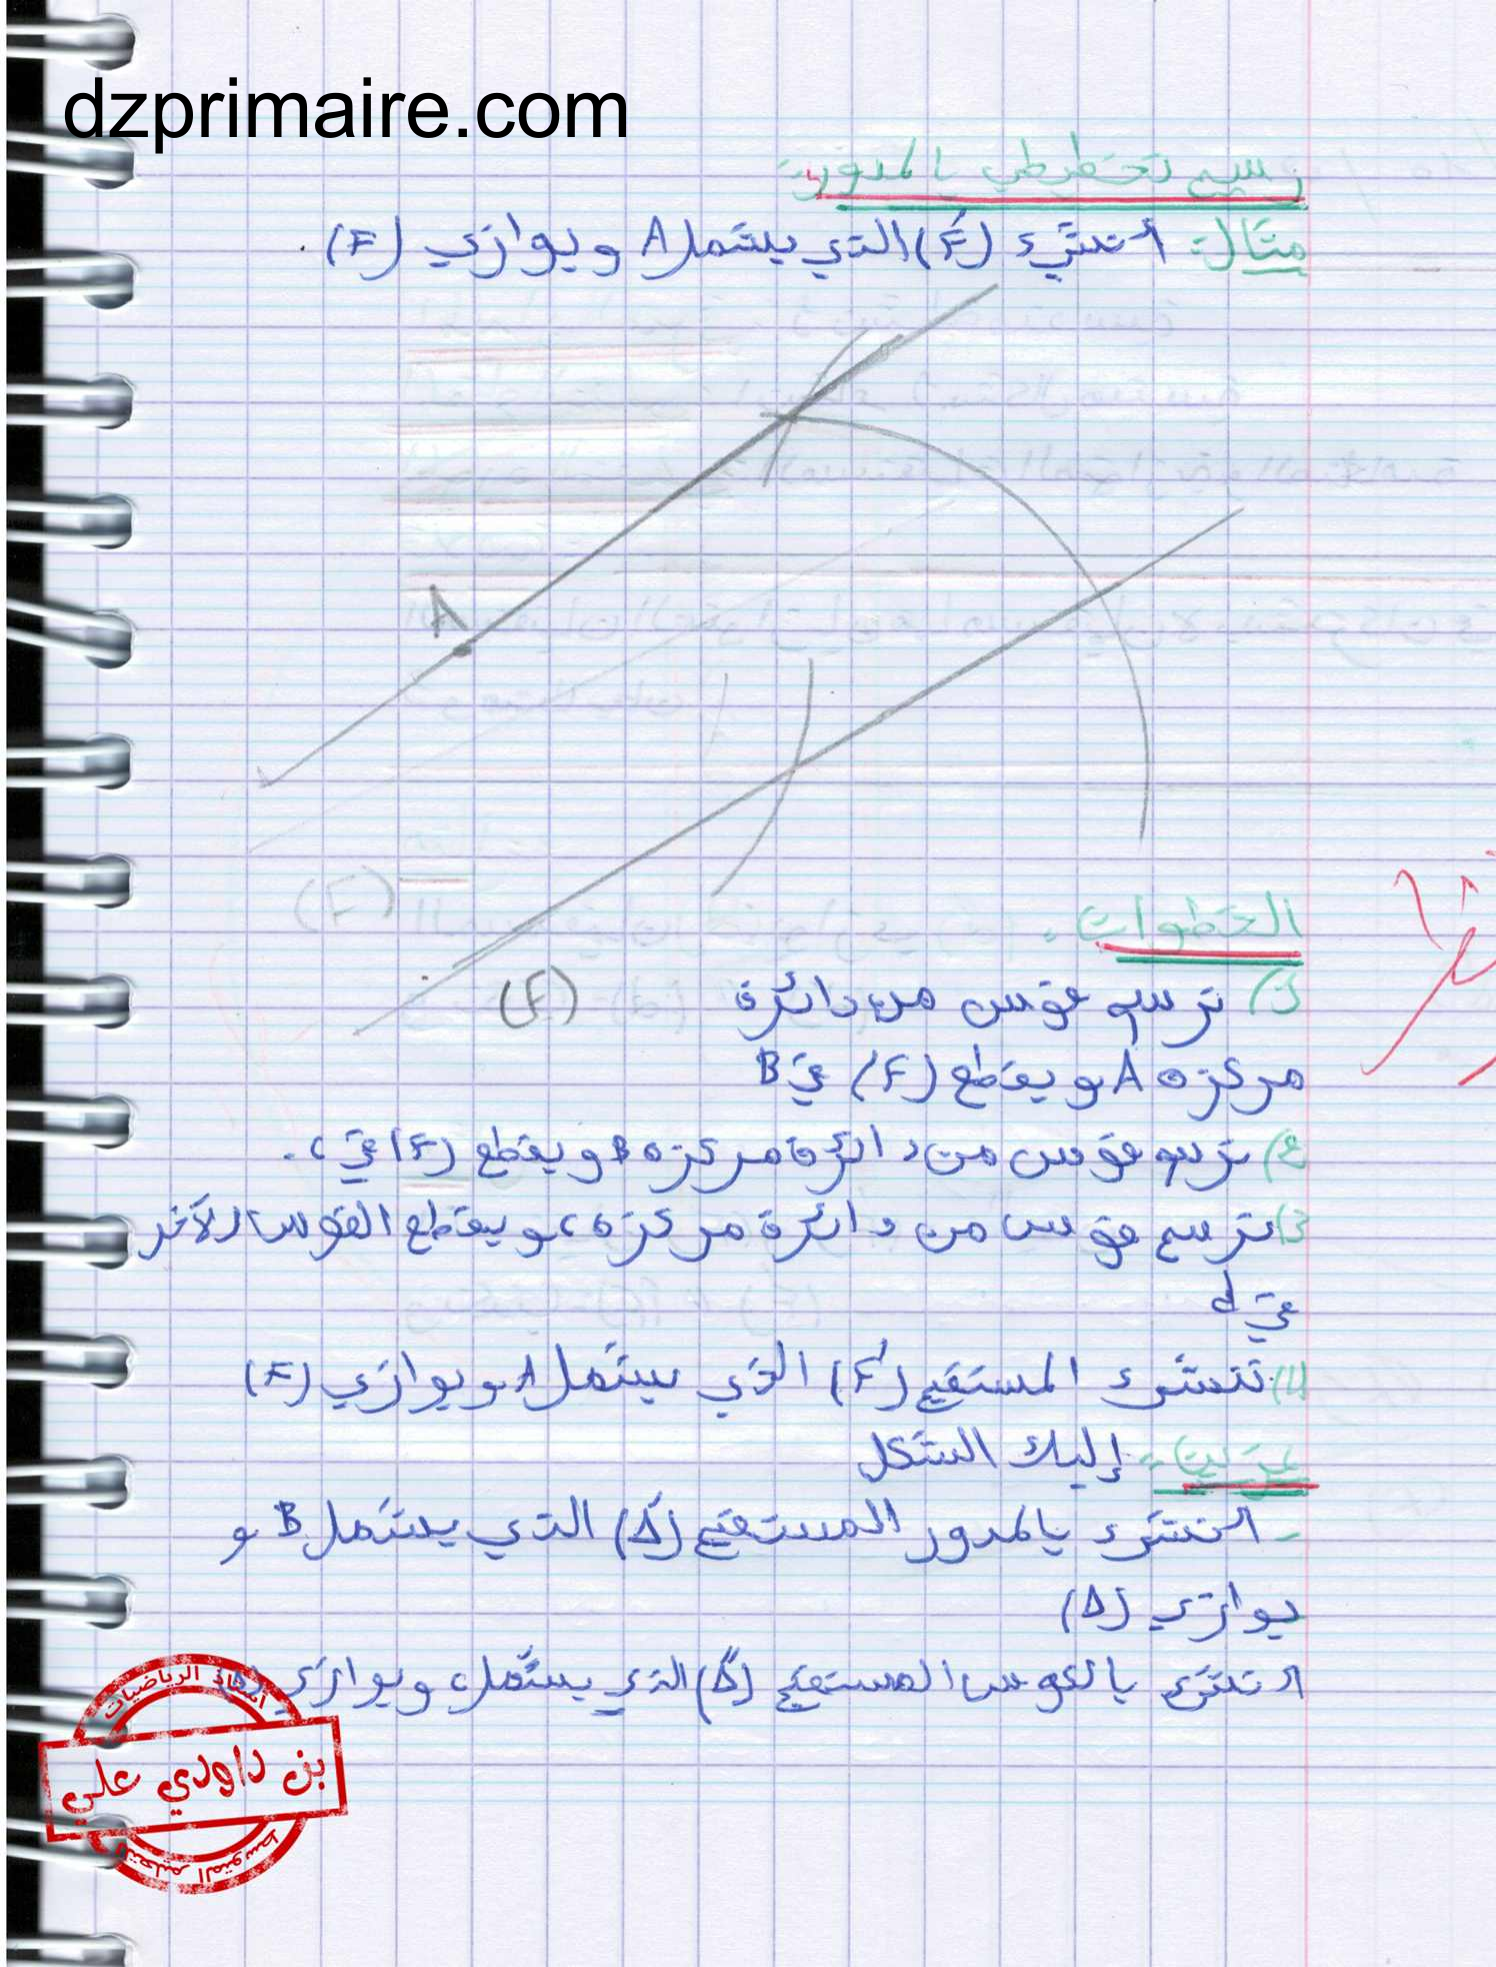 dzprimaire.com
رسم تخطيطي بالمدور:
مثال: أنشئ (F') الذي يشمل A ويوازي (F).
A
(F)
(F)
الخطوات:
1) نرسم قوس من دائرة
مركزه A و يقطع (F) في B
2) نرسم قوس من دائرة مركزه B و يقطع (F) في c.
3) نرسم قوس من دائرة مركزه c و يقطع القوس الآخر
في d
4) ننشئ المستقيم (F') الذي يشمل A و يوازي (F)
تمرين: إليك الشكل
- انشئ بالمدور المستقيم (Δ') الذي يشمل B و
يوازي (Δ)
انشئ بالكوس المستقيم (Δ") الذي يشمل c ويوازي (Δ)
أستاذ الرياضيات
بن داودي علي
للتعليم المتوسط